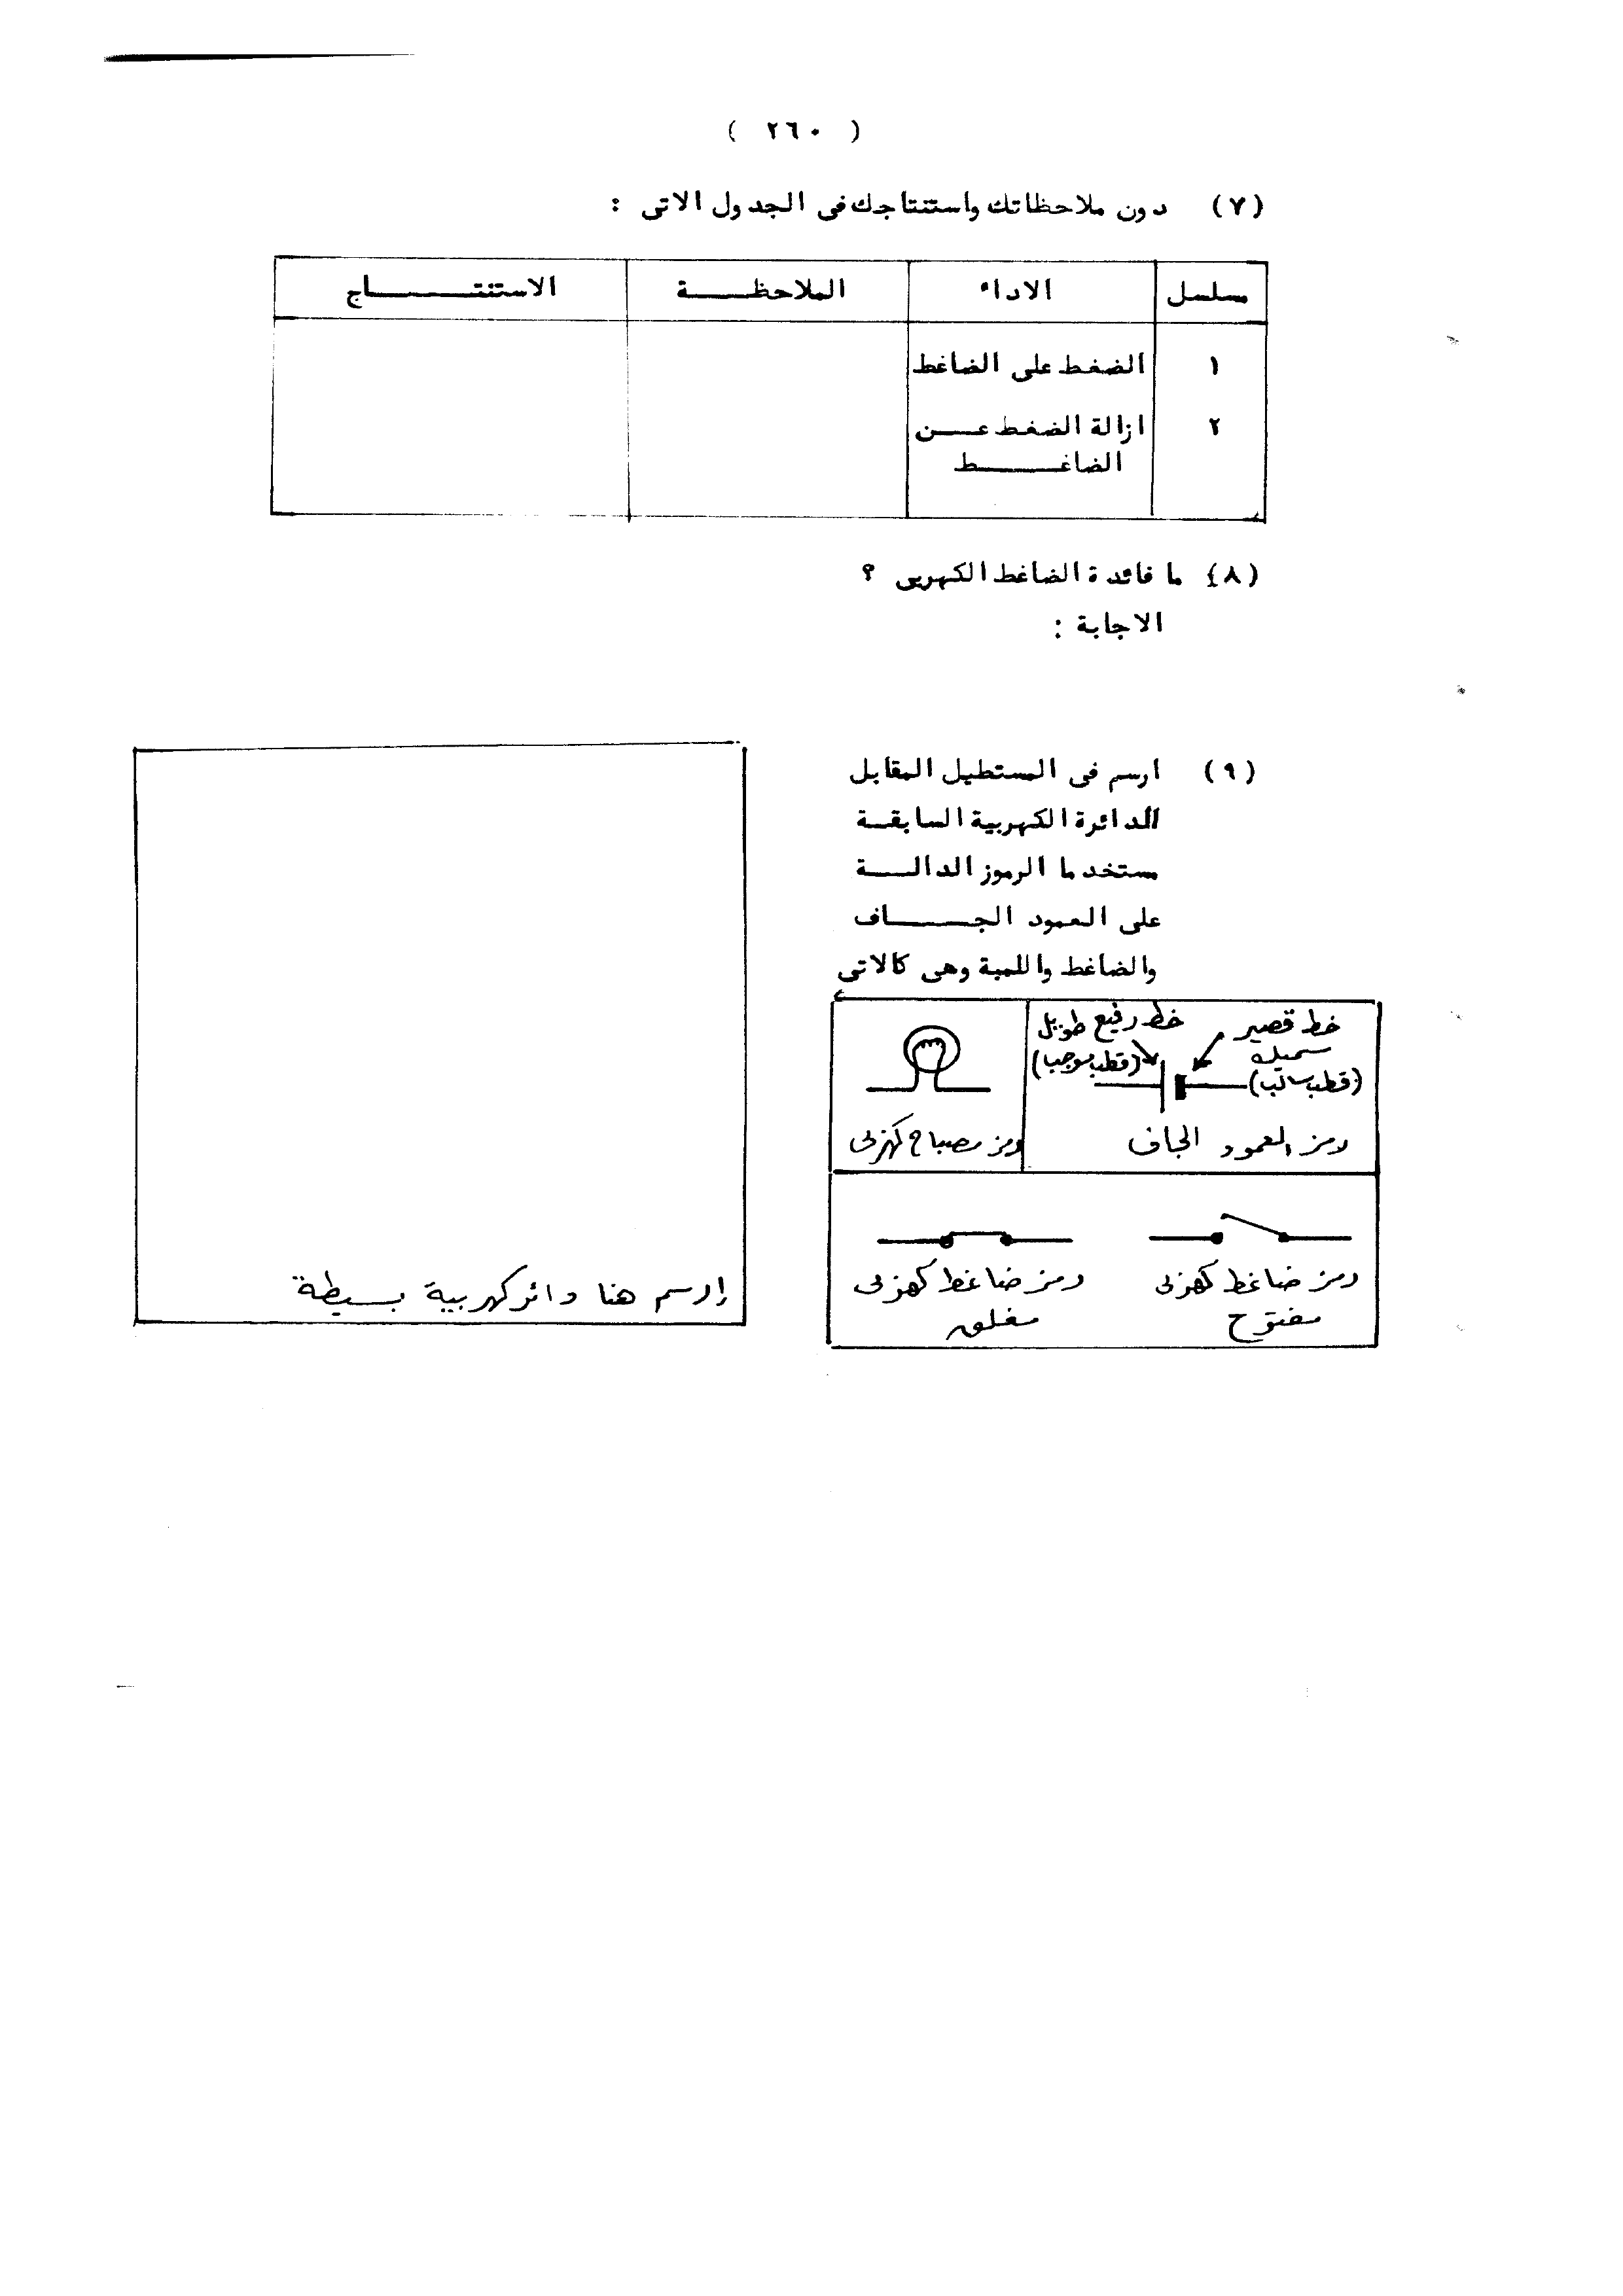 ( ٢٦٠ )
(٧) دون ملاحظاتك واستنتاجك فى الجدول الاتى :
مسلسل الاداء الملاحظة الاستنتاج
١ الضغط على الضاغط
٢ ازالة الضغط عن
الضاغط
(٨) ما فائدة الضاغط الكهربى ؟
الاجابة :
(٩) ارسم فى المستطيل المقابل
الدائرة الكهربية السابقة
مستخدما الرموز الدالة
على العمود الجاف
والضاغط واللمبة وهى كالاتى
خط قصير
سميك
(قطب سالب)
خط رفيع طويل
(قطب موجب)
رمز العمود الجاف
رمز مصباح كهربى
رمز ضاغط كهربى
مفتوح
رمز ضاغط كهربى
مغلق
إرسم هنا دائر كهربية بسيطة